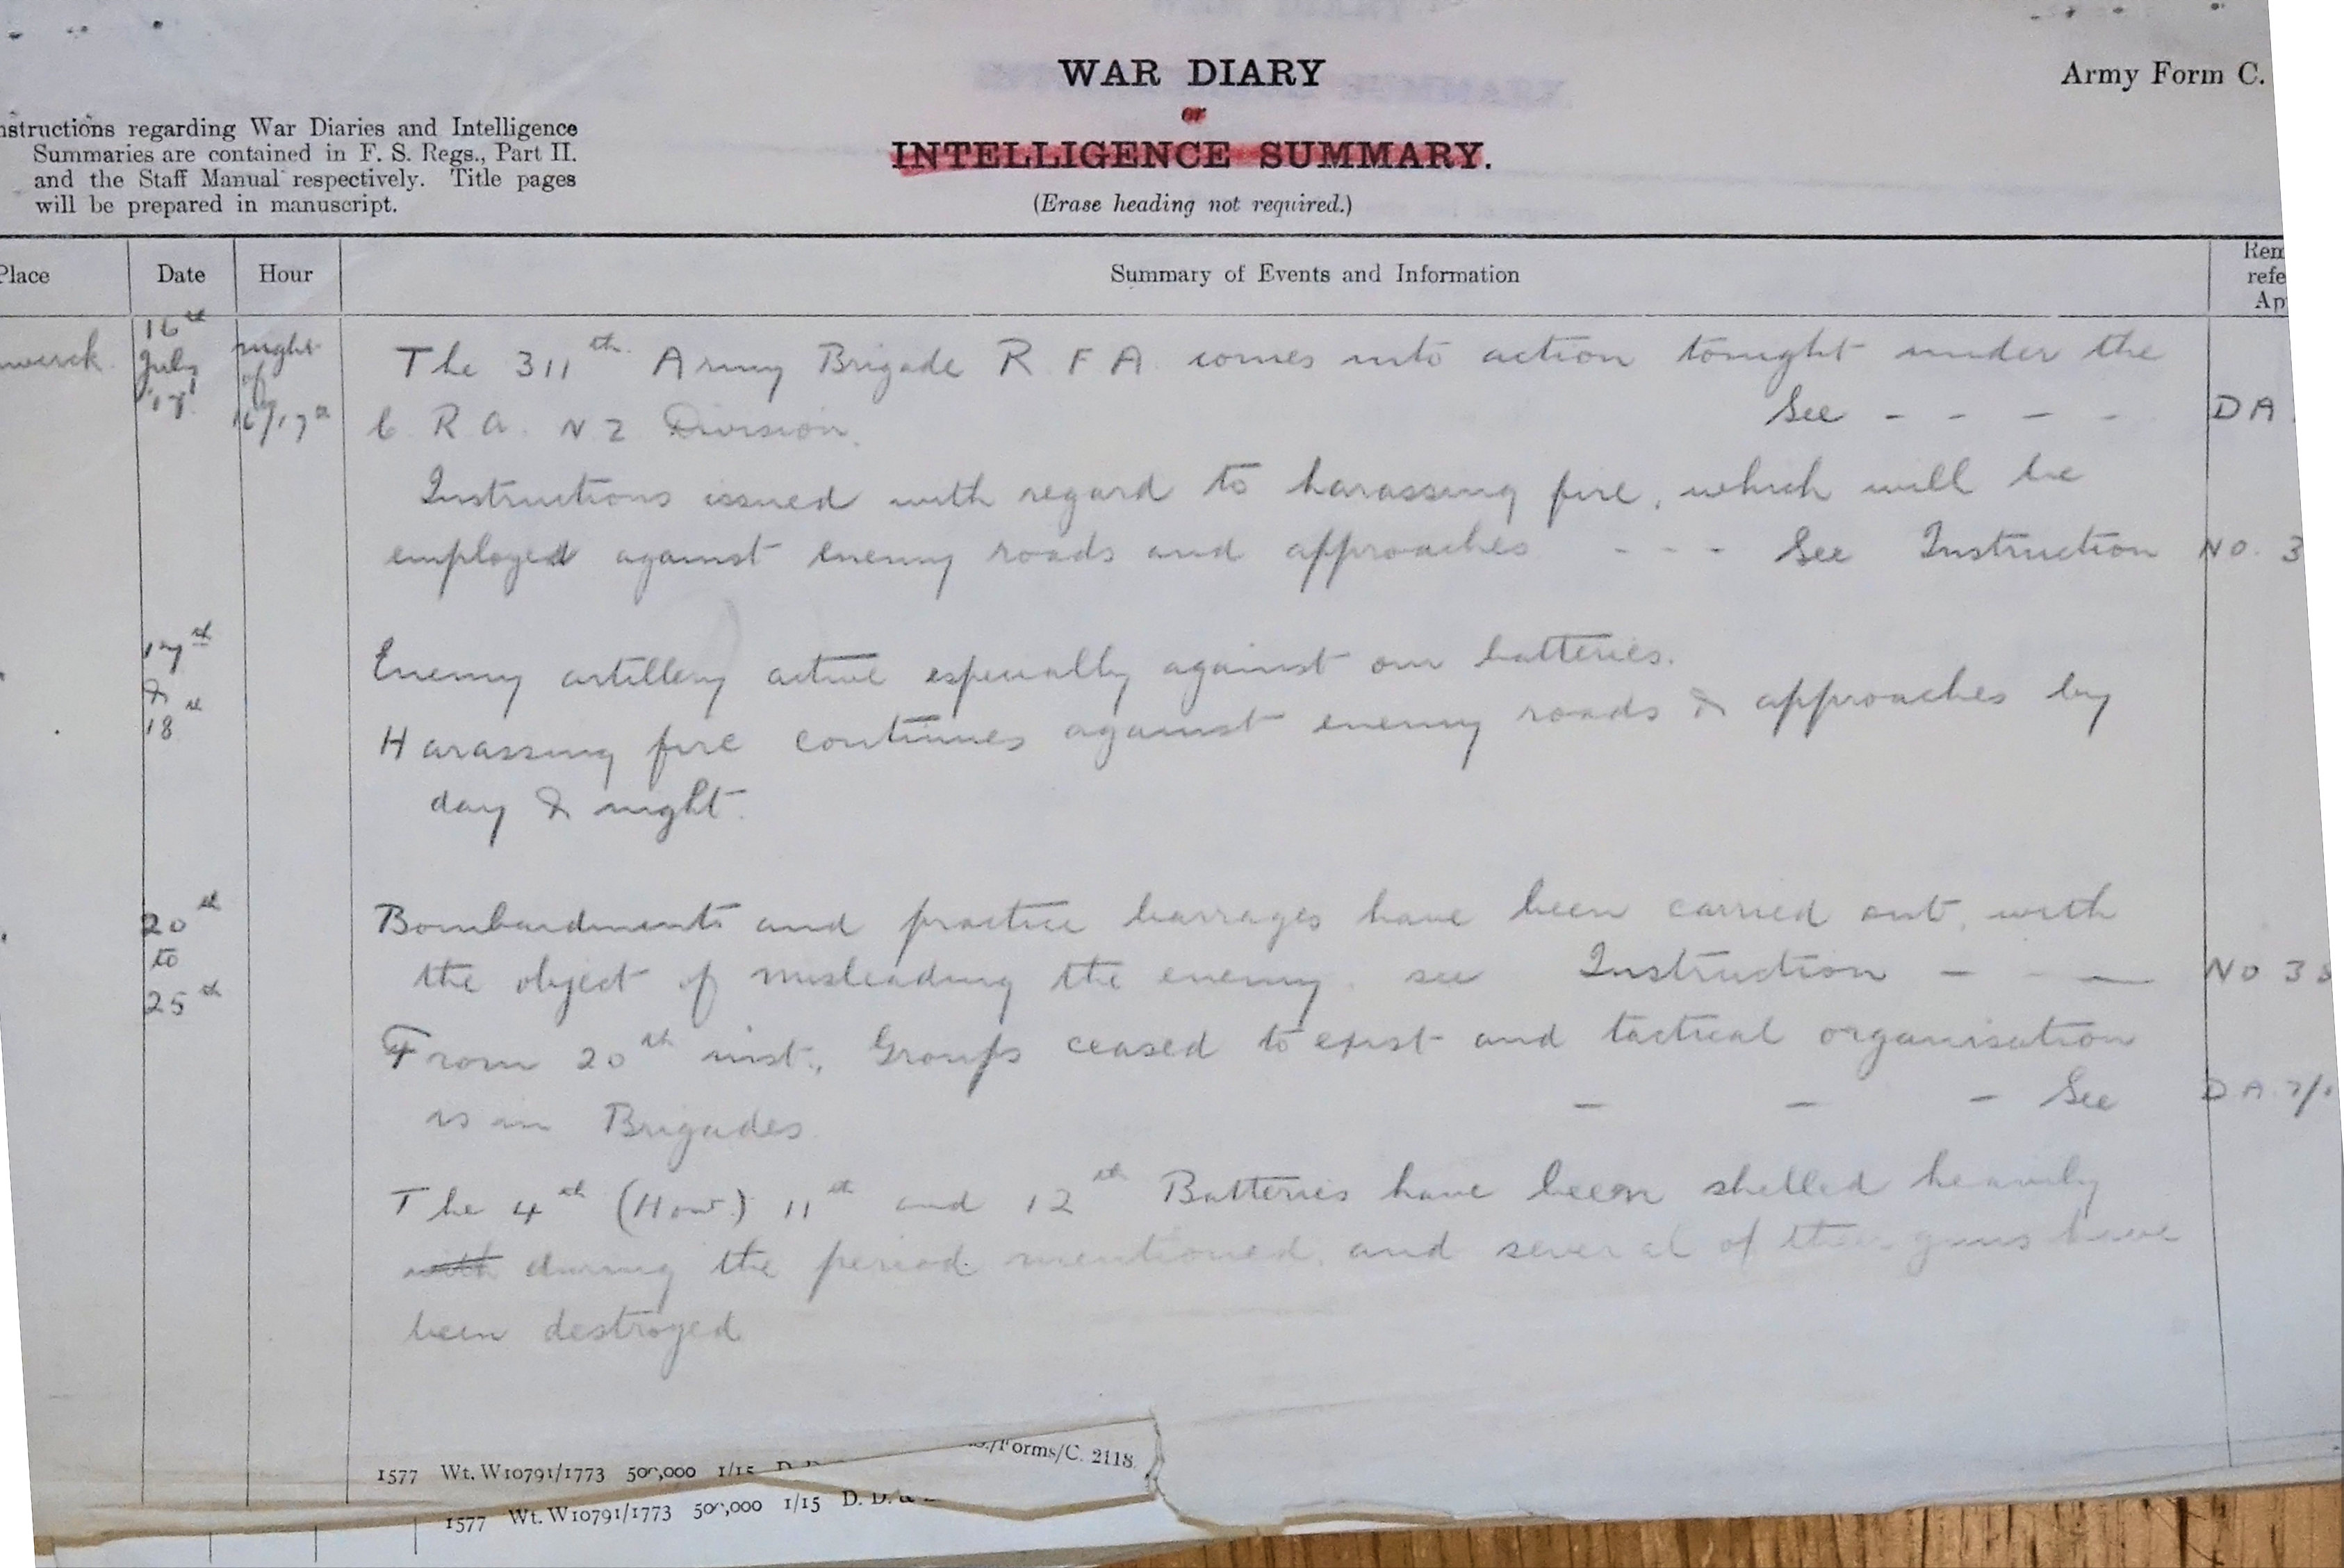 WAR DIARY
or
INTELLIGENCE SUMMARY.
(Erase heading not required.)
Army Form C.
nstructions regarding War Diaries and Intelligence
Summaries are contained in F. S. Regs., Part II.
and the Staff Manual respectively. Title pages
will be prepared in manuscript.
Place Date Hour Summary of Events and Information Rem
refe
Ap
werck. 16th July '17 night of 16/17th
The 311th Army Brigade R F A comes into action tonight under the
C R A. N Z Division. See - - - - DA
Instructions issued with regard to harassing fire, which will be
employed against enemy roads and approaches - - - See Instruction No. 3
17th & 18th
Enemy artillery active especially against our batteries.
Harassing fire continues against enemy roads & approaches by
day & night.
20th to 25th
Bombardments and practice barrages have been carried out, with
the object of misleading the enemy. see Instruction - - - No 38
From 20th inst., Groups ceased to exist and tactical organisation
is in Brigades - - - See DA 7/
The 4th (How.) 11th and 12th Batteries have been shelled heavily
with during the period mentioned, and several of their guns have
been destroyed
1577 Wt. W10791/1773 500,000 1/15 D. D. /Forms/C. 2118.
1577 Wt. W10791/1773 500,000 1/15 D. D. &